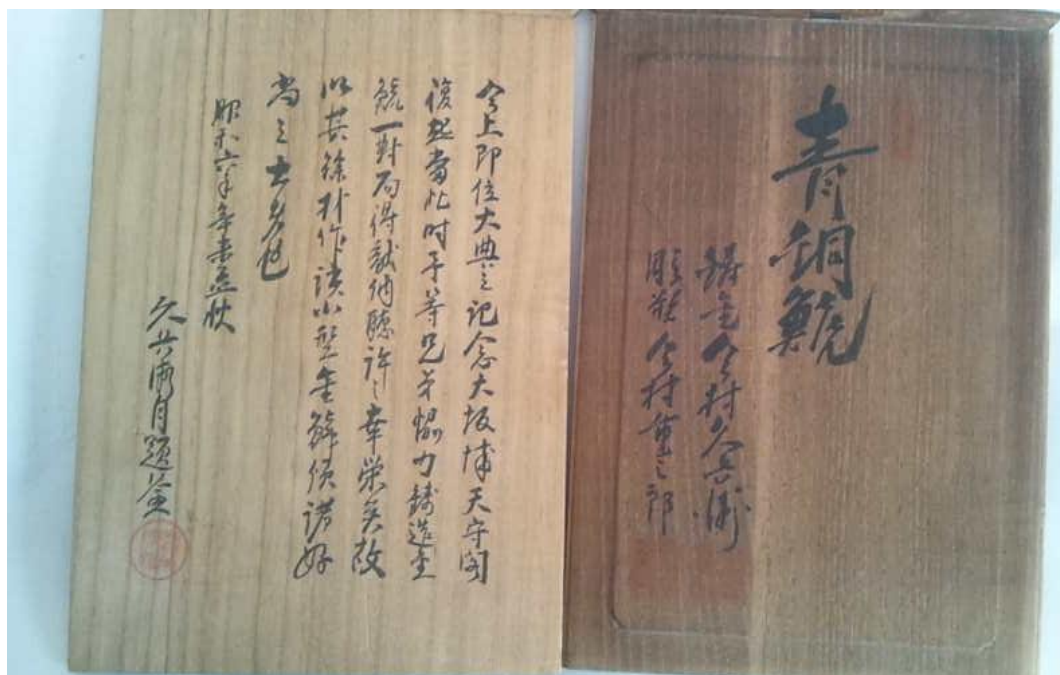 青銅鯱
鑄金今村久兵衛
彫塑今村重郎
今上即位大典之記念大坂城天守閣
復興當此時予等兄弟協力鋳造金
鯱一對而得献納聴許之幸栄矣故
以其餘材作該小型金鯱頒諸好
尚之士者也
昭和六年辛未孟秋
久兵衛自題